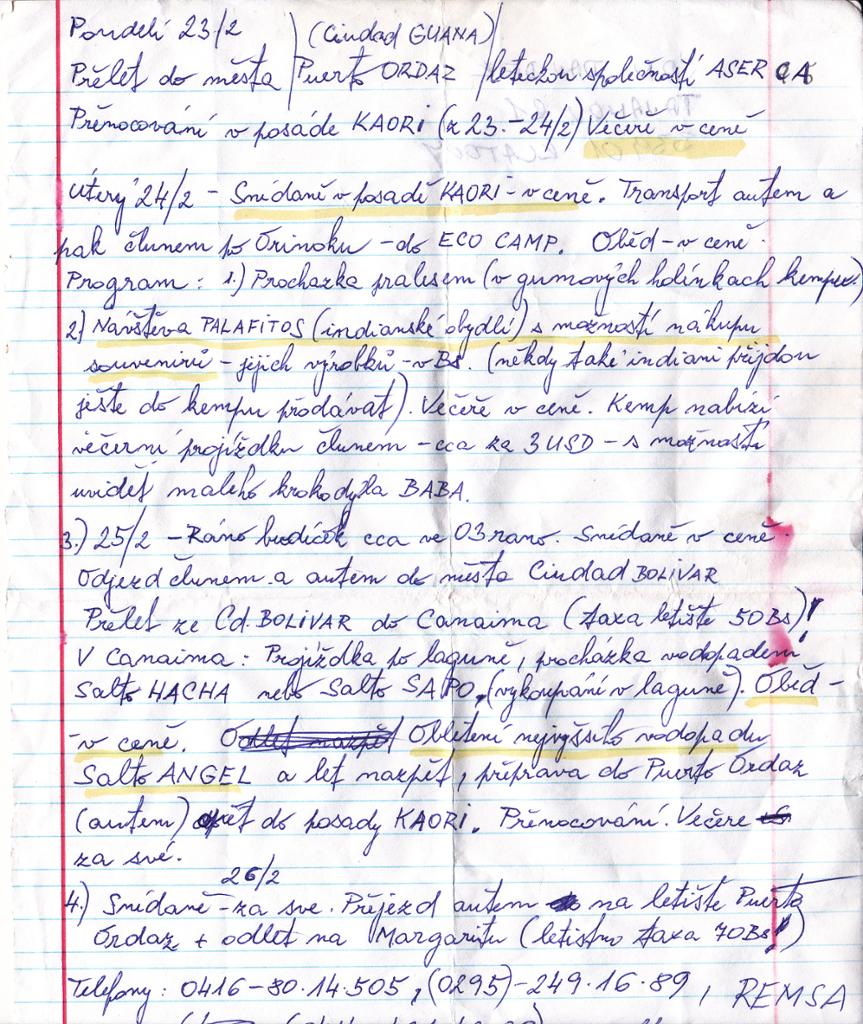 Pondeli 23/2 (Ciudad GUANA)
Přelet do města Puerto ORDAZ leteckou společností ASER CA
Přenocování v posáde KAORI (z 23.-24/2) Večeře v ceně
Úterý 24/2 - Snídaně v posadě KAORI - v ceně. Transport autem a
pak člunem po Orinoku - do ECO CAMP. Oběd - v ceně.
Program: 1.) Prochazka pralesem (v gumových holínkách kempu.)
2) Návštěva PALAFITOS (indianské obydlí) s možností nákupu
souvenirů - jejich výrobků - v Bs. (někdy také indiani přijdou
ještě do kempu prodávat). Večeře v ceně. Kemp nabízí
večerní projíždku člunem - cca za 3 USD - s možností
uvidět malého krokodýla BABA.
3.) 25/2 - Ráno budíček cca ve 03 rano. Snídaně v ceně.
Odjezd člunem a autem do města Ciudad BOLIVAR
Přelet ze Cd. BOLIVAR do Canaima (taxa letiště 50 Bs)!
V Canaima: Projíždka po laguně, procházka vodopadem
Salto HACHA nebo Salto SAPO, (vykoupání v laguně). Oběd -
- v ceně. Obletení nejvyššího vodopadu
Salto ANGEL a let nazpět, připrava do Puerto Ordaz
(autem) opět do posady KAORI. Přenocování. Večeře
za své.
26/2
4.) Snídaně - za sve. Přejezd autem na letiště Puerto
Ordaz + odlet na Margaritu (letistní taxa 70 Bs!)
Telefony: 0416-80.14.505, (0295)-249.16.89, REMSA